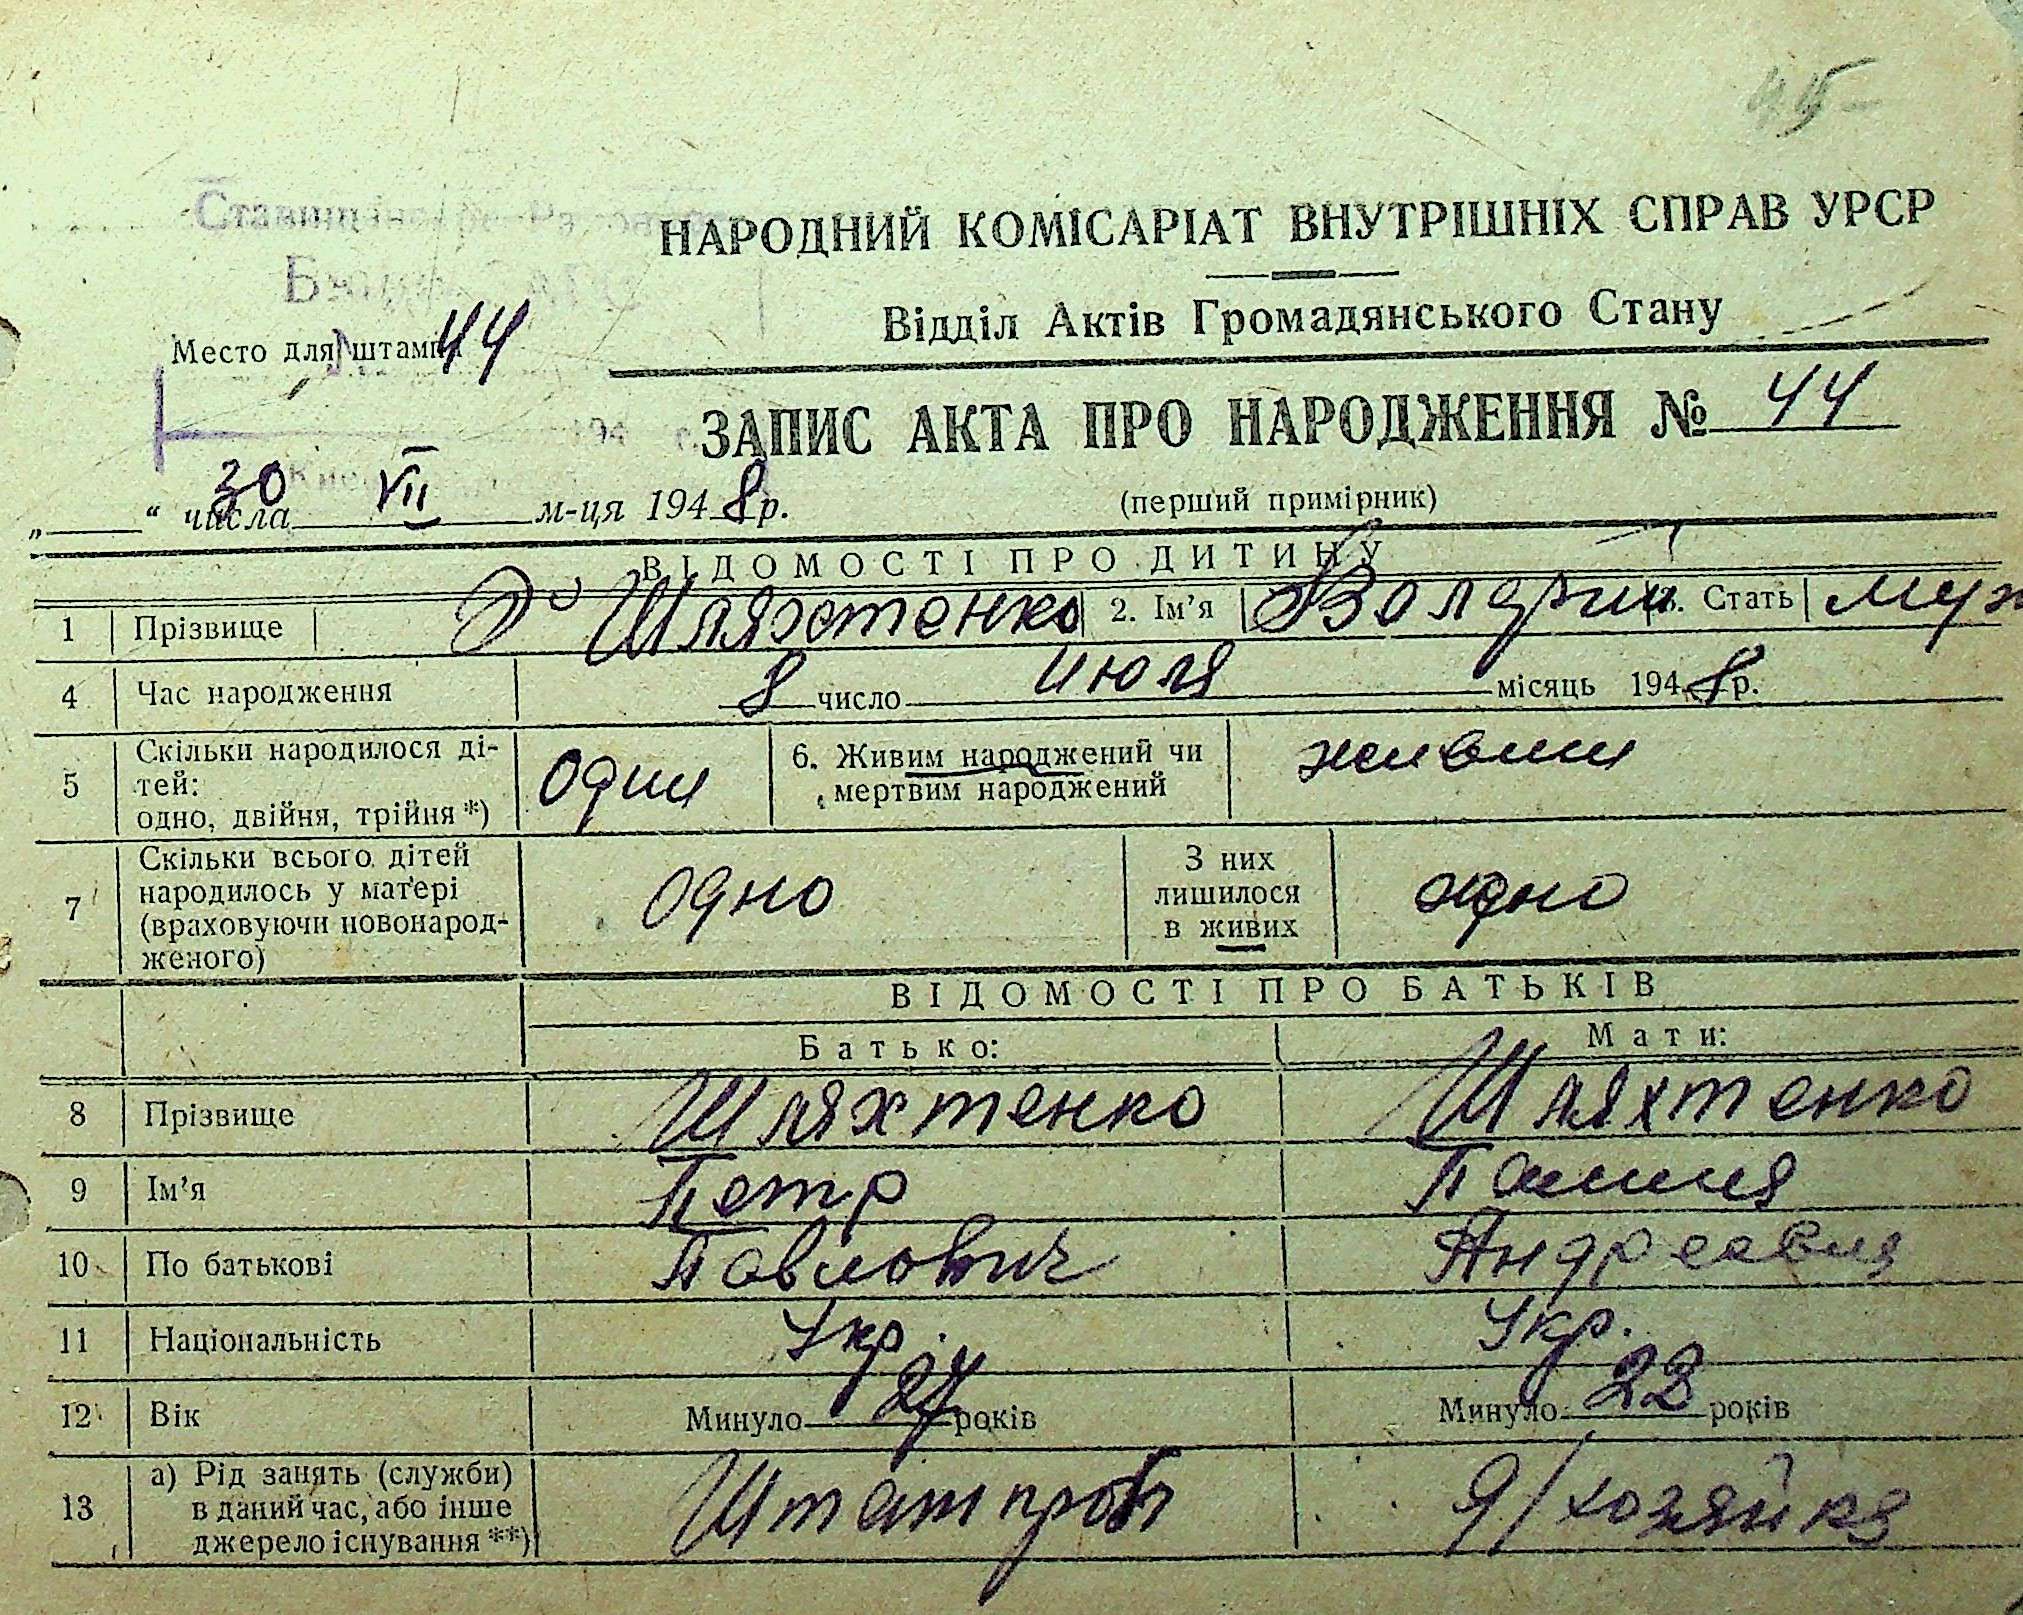 45
НАРОДНИЙ КОМІСАРІАТ ВНУТРІШНІХ СПРАВ УРСР
Відділ Актів Громадянського Стану
Место для штампа 44
ЗАПИС АКТА ПРО НАРОДЖЕННЯ № 44
„ “ числа 30 VII м-ця 1948 р.
(перший примірник)
ВІДОМОСТІ ПРО ДИТИНУ
1 Прізвище Шляхтенко 2. Ім'я 3. Стать муж
4 Час народження 8 число июля місяць 1948 р.
5 Скільки народилося ді-
тей:
одно, двійня, трійня *) один
6. Живим народжений чи
мертвим народжений живим
7 Скільки всього дітей
народилось у матері
(враховуючи новонарод-
женого) одно
З них
лишилося
в живих одно
ВІДОМОСТІ ПРО БАТЬКІВ
Батько: Мати:
8 Прізвище Шляхтенко Шляхтенко
9 Ім'я Петр
10 По батькові Павлович Андреевна
11 Національність Укр. Укр.
12 Вік Минуло 27 років Минуло років
13 а) Рід занять (служби)
в даний час, або інше
джерело існування **) Д/хозяйка